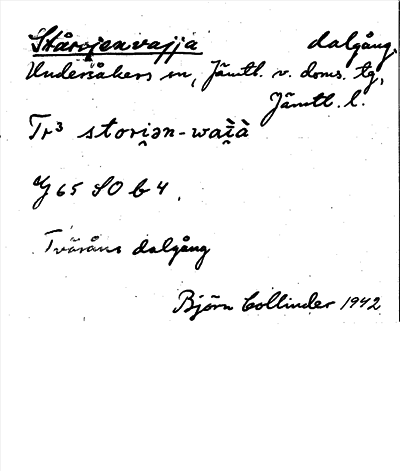 Stårojenvajja dalgång,
Undersåkers sn, Jämtl. v. doms. tg,
Jämtl. l.
Tr³ stori̯ən-waì̯à
G 65 SO b 4.
Tvåråns dalgång
Björn Collinder 1942